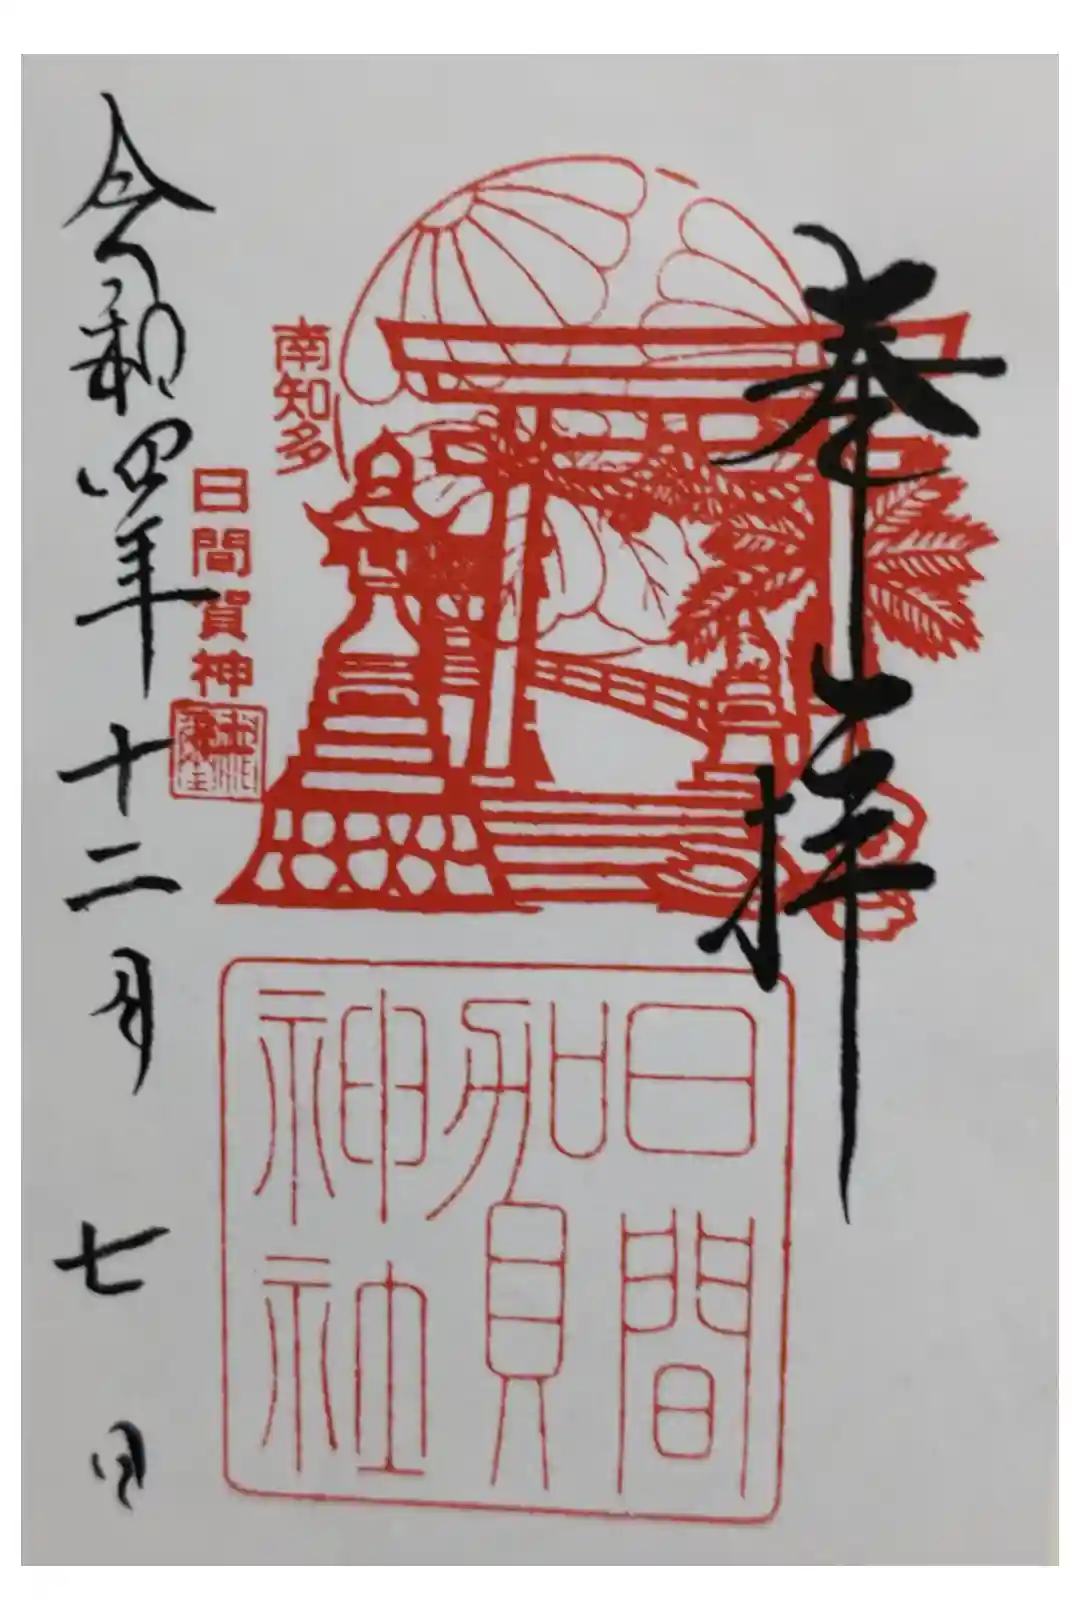 奉拝
南知多
日間賀神社
日間
賀
神社
令和四年十二月七日